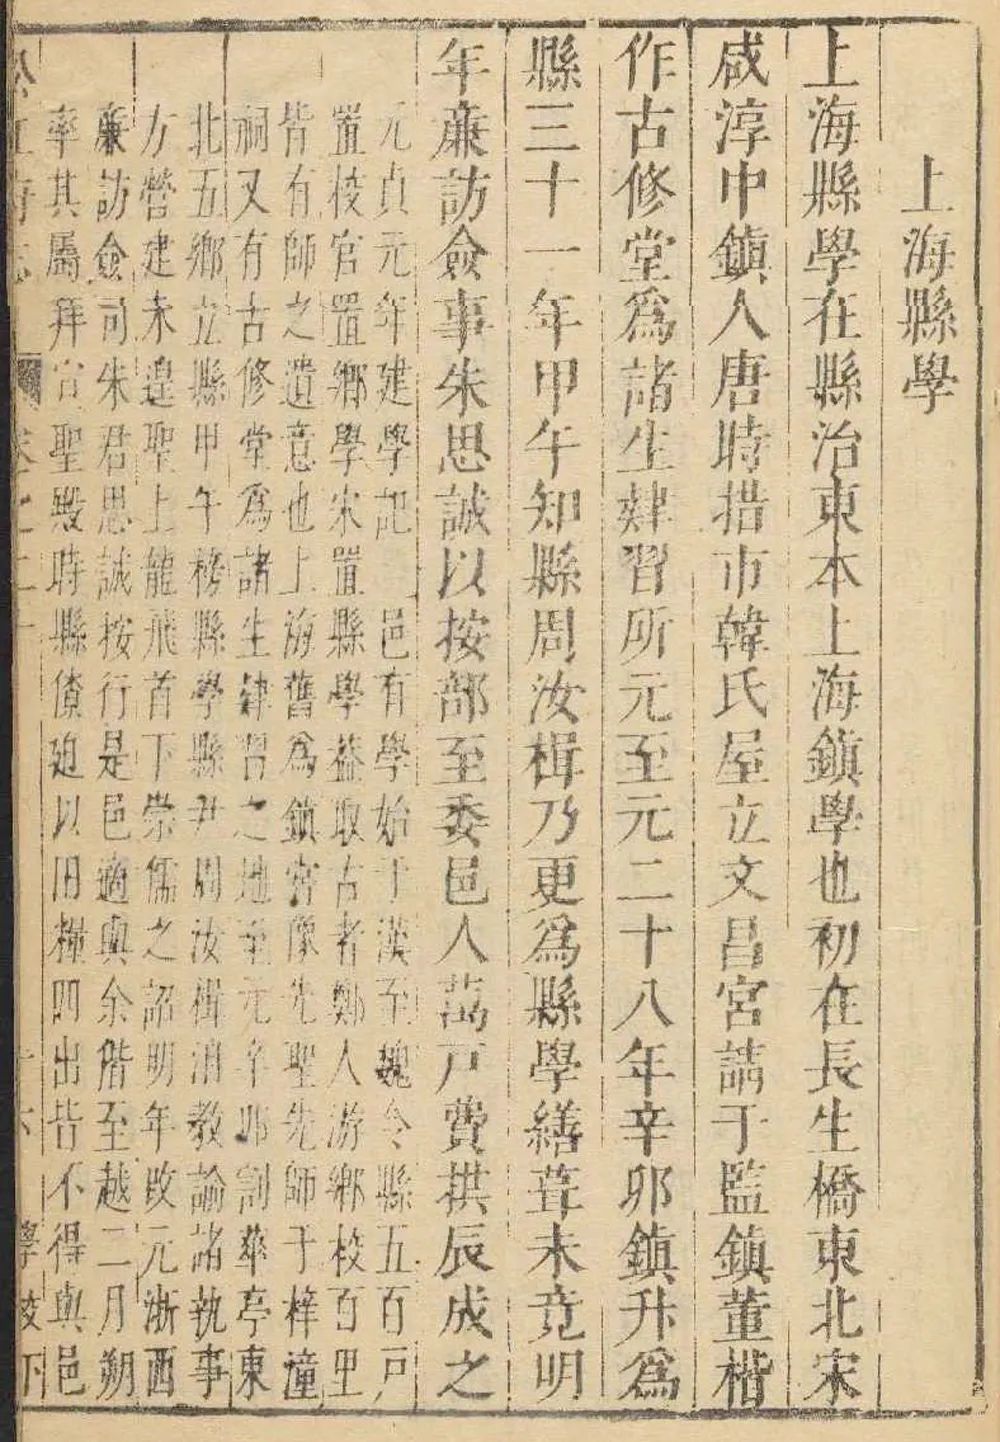 上海縣學
上海縣學在縣治東本上海鎮學也初在長生橋東北宋
咸淳中鎮人唐時措市韓氏屋立文昌宮請于監鎮董楷
作古修堂爲諸生肄習所元至元二十八年辛卯鎮升爲
縣三十一年甲午知縣周汝楫乃更爲縣學繕葺未竟明
年亷訪僉事朱思誠以按部至委邑人萬戸費拱辰成之
元貞元年建學記 邑有學始于漢至魏令縣五百戸
置校官置鄉學宋置縣學葢取古者鄭人游鄉校百里
皆有師之遺意也上海舊爲鎮宮像先聖先師于梓潼
祠又有古修堂爲諸生肄習之地至元辛卯割華亭東
北五鄉立縣甲午榜縣學縣尹周汝楫洎教諭諸執事
方營建未遑聖上龍飛首下崇儒之詔明年改元浙西
亷訪僉司朱君思誠按行是邑適與余偕至越二月朔
率其屬拜宣聖殿時縣僚廹以旧糧四出皆不得與邑
卷之二十
學校下